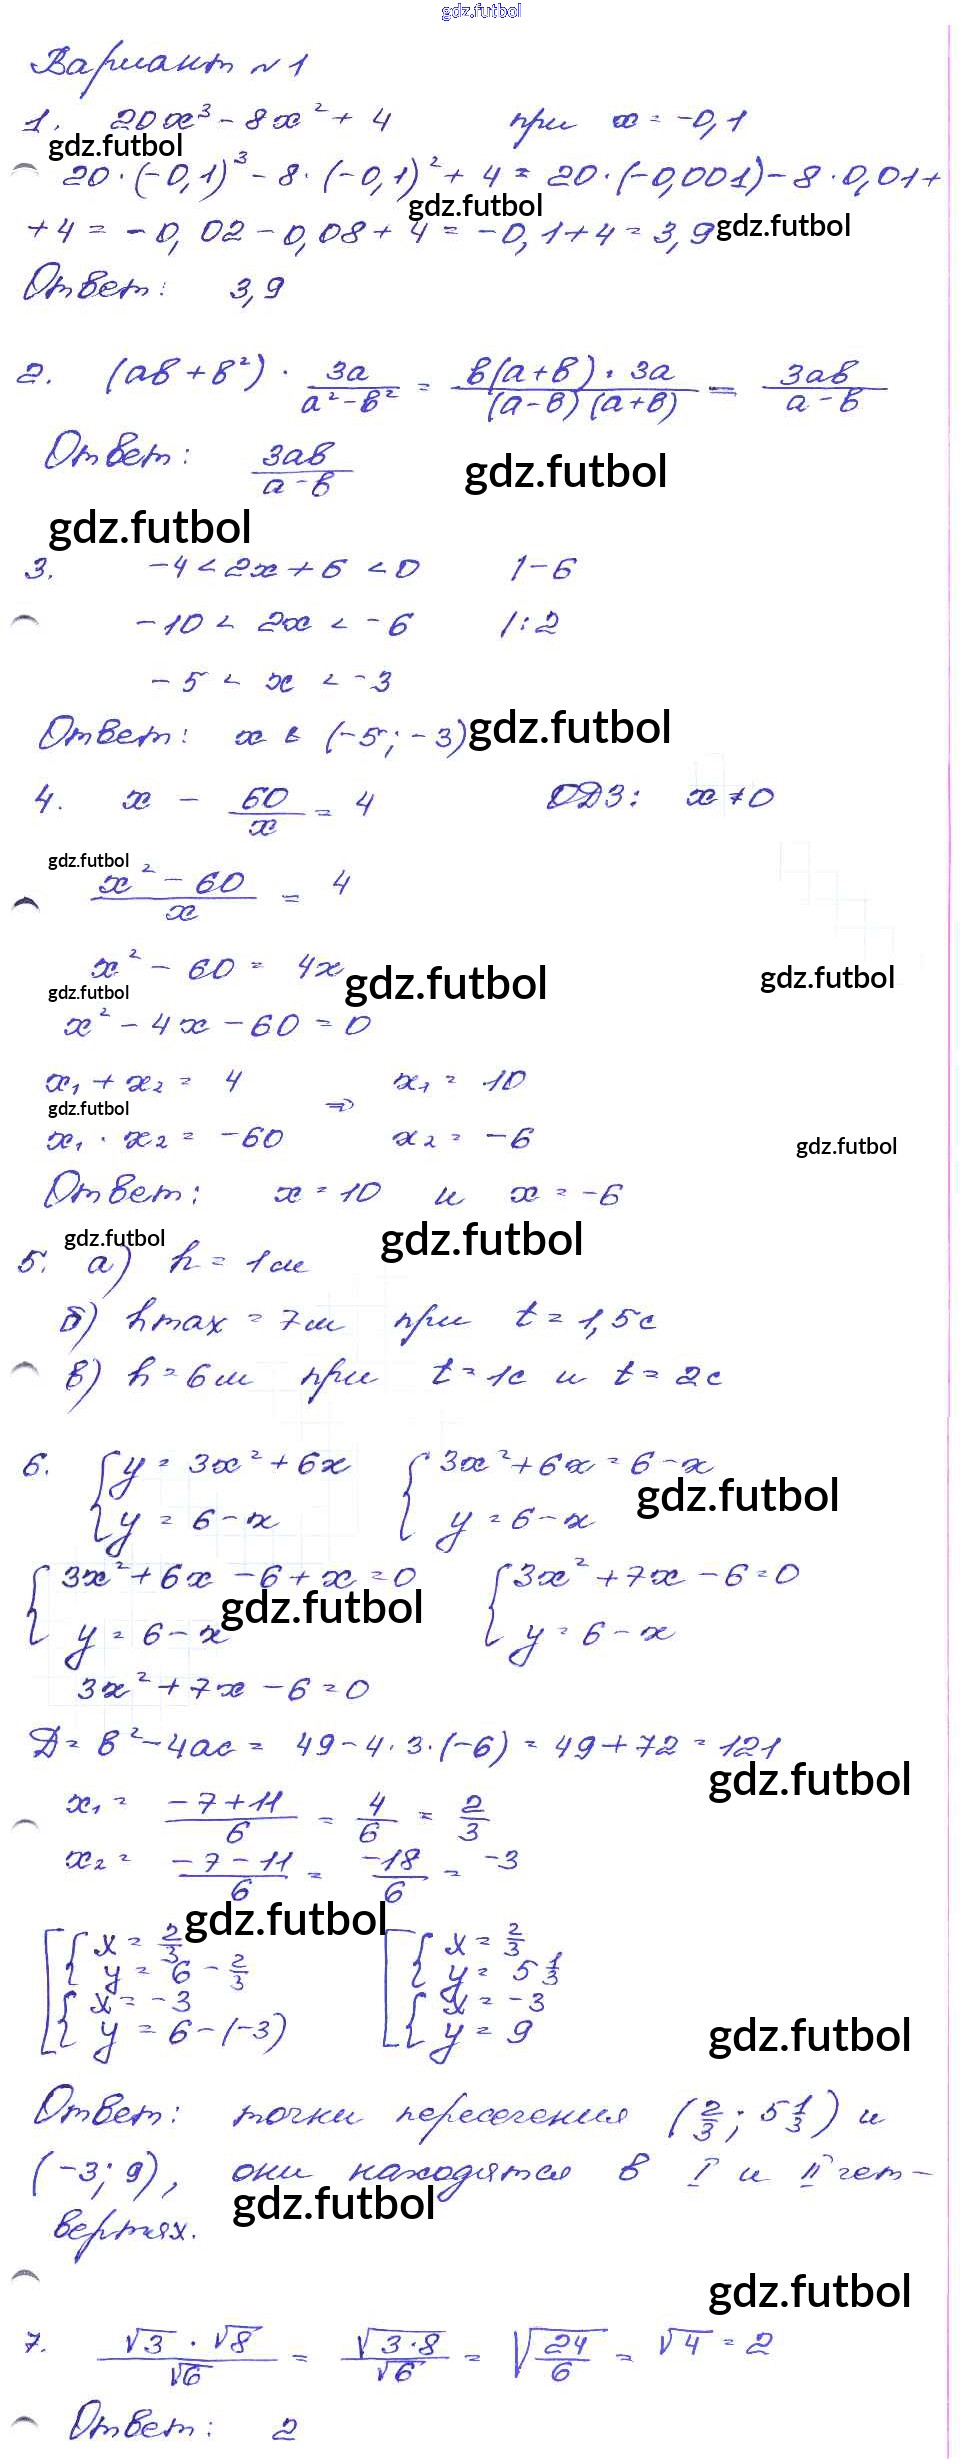 gdz.futbol
Вариант №1
1. 20x³ - 8x² + 4 при x = -0,1
gdz.futbol
20·(-0,1)³ - 8·(-0,1)² + 4 = 20·(-0,001) - 8·0,01 +
gdz.futbol
+ 4 = -0,02 - 0,08 + 4 = -0,1 + 4 = 3,9 gdz.futbol
Ответ: 3,9
2. (ab + b²) · 3a/(a² - b²) = b(a+b)·3a/((a-b)(a+b)) = 3ab/(a-b)
Ответ: 3ab/(a-b) gdz.futbol
gdz.futbol
3. -4 < 2x + 6 < 0 |-6
-10 < 2x < -6 |:2
-5 < x < -3
Ответ: x ∈ (-5; -3) gdz.futbol
4. x - 60/x = 4 ОДЗ: x ≠ 0
gdz.futbol
(x² - 60)/x = 4
x² - 60 = 4x gdz.futbol gdz.futbol
gdz.futbol
x² - 4x - 60 = 0
x₁ + x₂ = 4 x₁ = 10
gdz.futbol ⇒
x₁ · x₂ = -60 x₂ = -6 gdz.futbol
Ответ: x = 10 и x = -6
gdz.futbol gdz.futbol
5. а) h = 1м
б) hmax = 7м при t = 1,5с
в) h = 6м при t = 1с и t = 2с
6. { y = 3x² + 6x { 3x² + 6x = 6 - x
gdz.futbol
y = 6 - x y = 6 - x
{ 3x² + 6x - 6 + x = 0 { 3x² + 7x - 6 = 0
gdz.futbol
y = 6 - x y = 6 - x
3x² + 7x - 6 = 0
Д = b² - 4ac = 49 - 4·3·(-6) = 49 + 72 = 121
gdz.futbol
x₁ = (-7+11)/6 = 4/6 = 2/3
x₂ = (-7-11)/6 = -18/6 = -3
gdz.futbol
[ { x = 2/3 [ { x = 2/3
y = 6 - 2/3 y = 5 1/3
{ x = -3 { x = -3
y = 6 - (-3) y = 9 gdz.futbol
Ответ: точки пересечения (2/3; 5 1/3) и
(-3; 9), они находятся в I и II чет-
gdz.futbol
вертях.
gdz.futbol
7. √3 · √8/√6 = √(3·8)/√6 = √(24/6) = √4 = 2
Ответ: 2